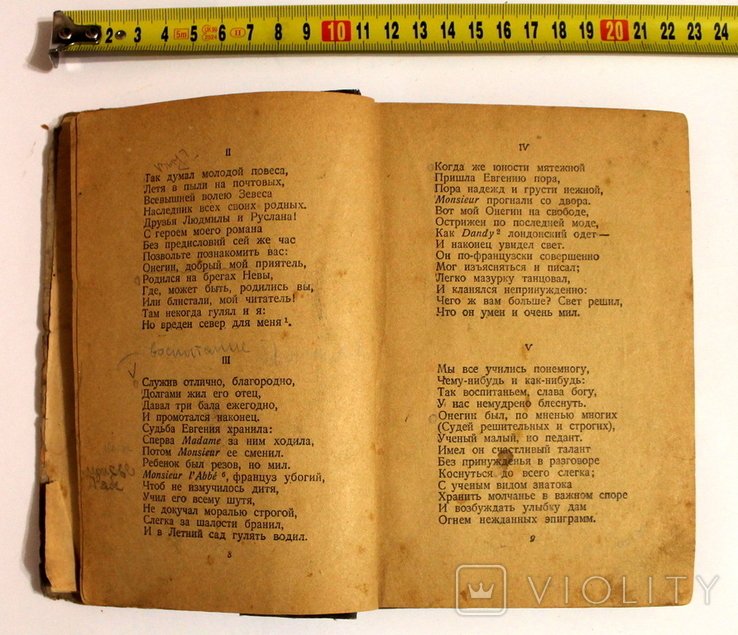 2 3 4 5m 5 6 II 7 8 9 10 11 12 13 14 15 16 17 18 19 20 21 22 23 24
II
Так думал молодой повеса,
Летя в пыли на почтовых,
Всевышней волею Зевеса
Наследник всех своих родных.
Друзья Людмилы и Руслана!
С героем моего романа
Без предисловий сей же час
Позвольте познакомить вас:
Онегин, добрый мой приятель,
Родился на брегах Невы,
Где, может быть, родились вы,
Или блистали, мой читатель!
Там некогда гулял и я:
Но вреден север для меня¹.
воспитание
III
Служив отлично, благородно,
Долгами жил его отец,
Давал три бала ежегодно,
И промотался наконец.
Судьба Евгения хранила:
Сперва Madame за ним ходила,
Потом Monsieur ее сменил.
Ребенок был резов, но мил.
Monsieur l'Abbé ⁶, француз убогий,
Чтоб не измучилось дитя,
Учил его всему шутя,
Не докучал моралью строгой,
Слегка за шалости бранил,
И в Летний сад гулять водил.
8
IV
Когда же юности мятежной
Пришла Евгению пора,
Пора надежд и грусти нежной,
Monsieur прогнали со двора.
Вот мой Онегин на свободе,
Острижен по последней моде,
Как Dandy² лондонский одет—
И наконец увидел свет.
Он по-французски совершенно
Мог изъясняться и писал;
Легко мазурку танцовал,
И кланялся непринужденно:
Чего ж вам больше? Свет решил,
Что он умен и очень мил.
V
Мы все учились понемногу,
Чему-нибудь и как-нибудь:
Так воспитаньем, слава богу,
У нас немудрено блеснуть.
Онегин был, по мненью многих
(Судей решительных и строгих),
Ученый малый, но педант.
Имел он счастливый талант
Без принужденья в разговоре
Коснуться до всего слегка;
С ученым видом знатока
Хранить молчанье в важном споре
И возбуждать улыбку дам
Огнем нежданных эпиграмм.
9
VIOLITY